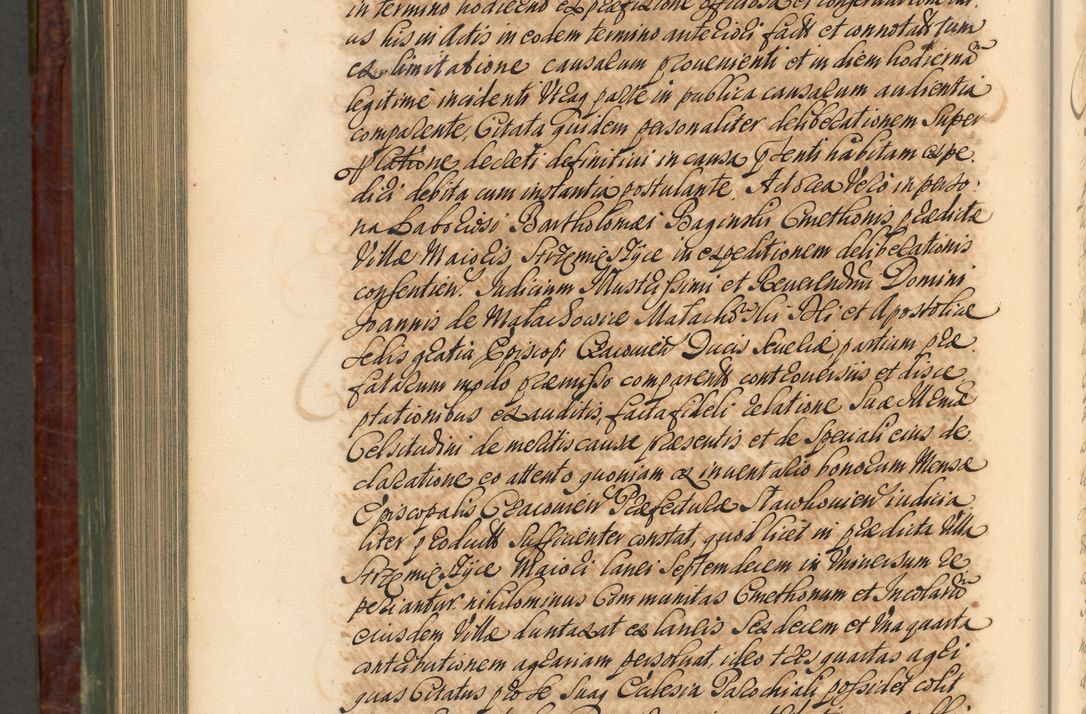 in termino hodierno ex præfixione officiosa et conservatione
us his in Actis in eodem termino anteriori fact et connotat tum
ex limitatione causarum provenienti et in diem hodiernã
legitime incidenti Utraq parte in publica causarum audientia
comparente, Citata quidem personaliter deliberationem super
pplatione decreti definitivi in causa pñti habitam expe
diri debita cum instantia postulante. Ad orea Vero in perso:
na Laboriosi Bartholomæi Baginski Cmethonis, prædictæ
Villæ Maioris Strzemieszyce in expeditionem deliberationis
consentien. Judicium Illustrissimi et Reverendim̃ Domini
Joannis de Małachowice Małachowski Dei et Apostolicæ
Sedis gratia Episcopi Cracovien Ducis Severiæ partium præ
fatarum modo præmisso comparent controversijs et disce
ptationibus exauditis, facta fideli relatione Suæ Illmæ
Celsitudini de meritis causæ præsentis et de speciali eius de
claratione eo attento quoniam ex inventario bonorum Mensæ
Episcopalis Cracovien Præfecturæ Sławkovien iudicia
liter product sufficienter constat, quod licet in prædicta Villa
Strzemieszyce Maiori lanei Septemdecem in Universum re
periantur nihilominus Communitas Cmethonum et Incolarũ
eiusdem Villæ duntaxat ex laneis Sexdecem et Una quarta
contributionem agrariam persolvat, ideo tres quartas agri
quas Citatus pro se suaq Ecclesia Parochiali possidet colit